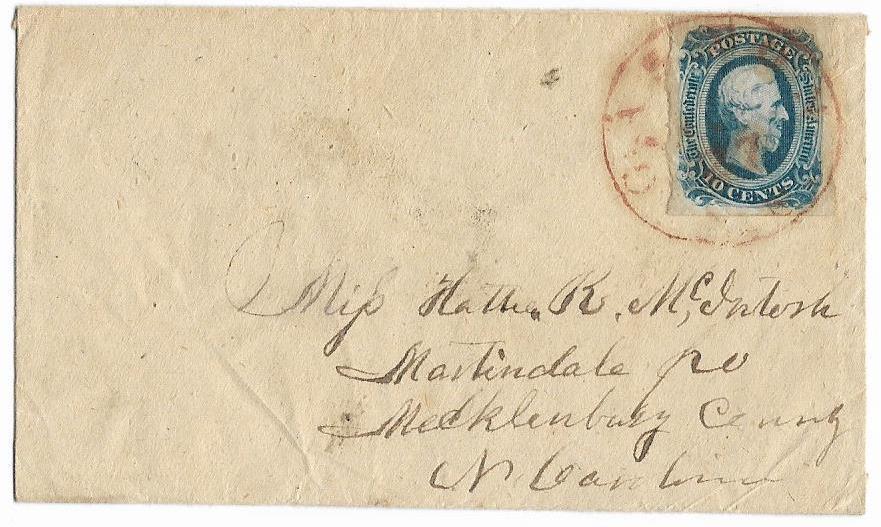 POSTAGE
The Confederate States of America
10 CENTS
GA
Miss Hattie K. McIntosh
Martindale PO
Mecklenburg County
N. Carolina